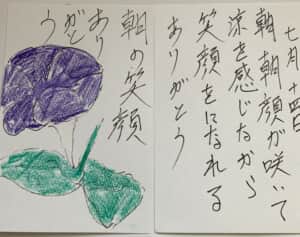 七月十四日
朝 朝顔が咲いて
涼を感じながら
笑顔をになれる
ありがとう
朝の笑顔
あり
がとう